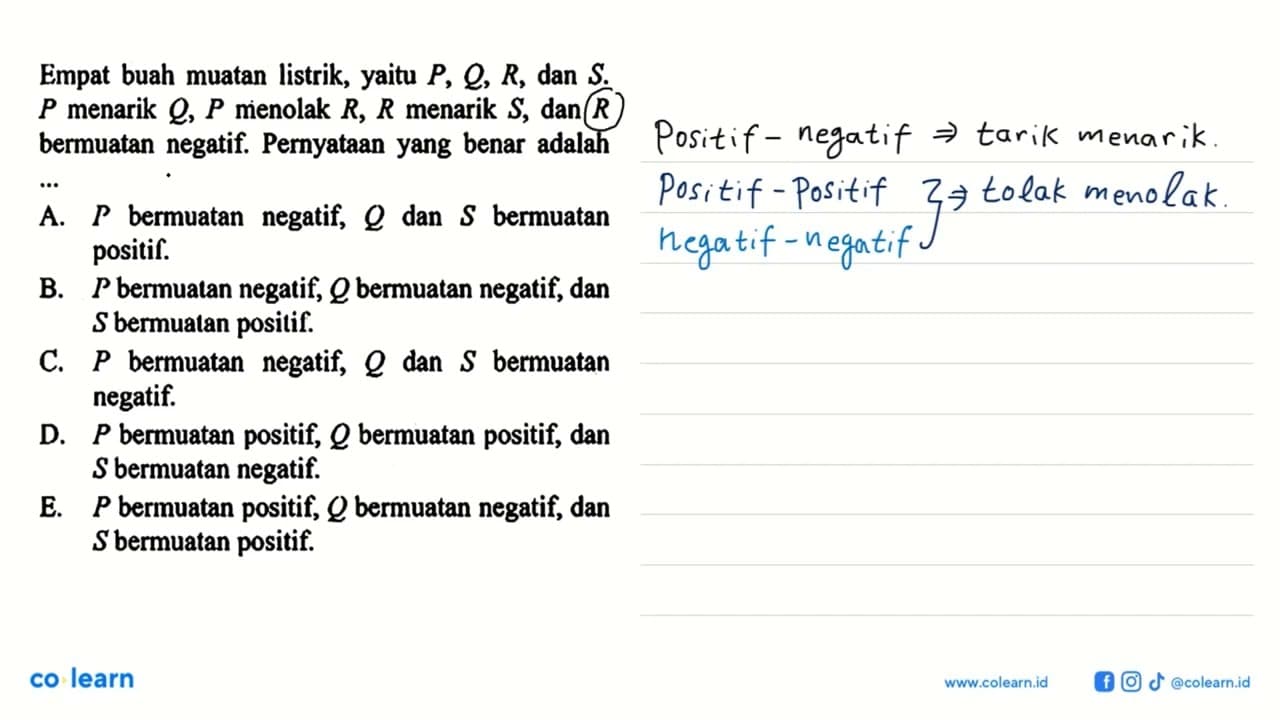 Empat buah muatan listrik, yaitu P, Q, R, dan S.
P menarik Q, P menolak R, R menarik S, dan R
bermuatan negatif. Pernyataan yang benar adalah
...
A. P bermuatan negatif, Q dan S bermuatan
positif.
B. P bermuatan negatif, Q bermuatan negatif, dan
S bermuatan positif.
C. P bermuatan negatif, Q dan S bermuatan
negatif.
D. P bermuatan positif, Q bermuatan positif, dan
S bermuatan negatif.
E. P bermuatan positif, Q bermuatan negatif, dan
S bermuatan positif.
Positif - negatif ⇒ tarik menarik.
Positif - Positif } ⇒ tolak menolak.
negatif - negatif
co learn
www.colearn.id
@colearn.id